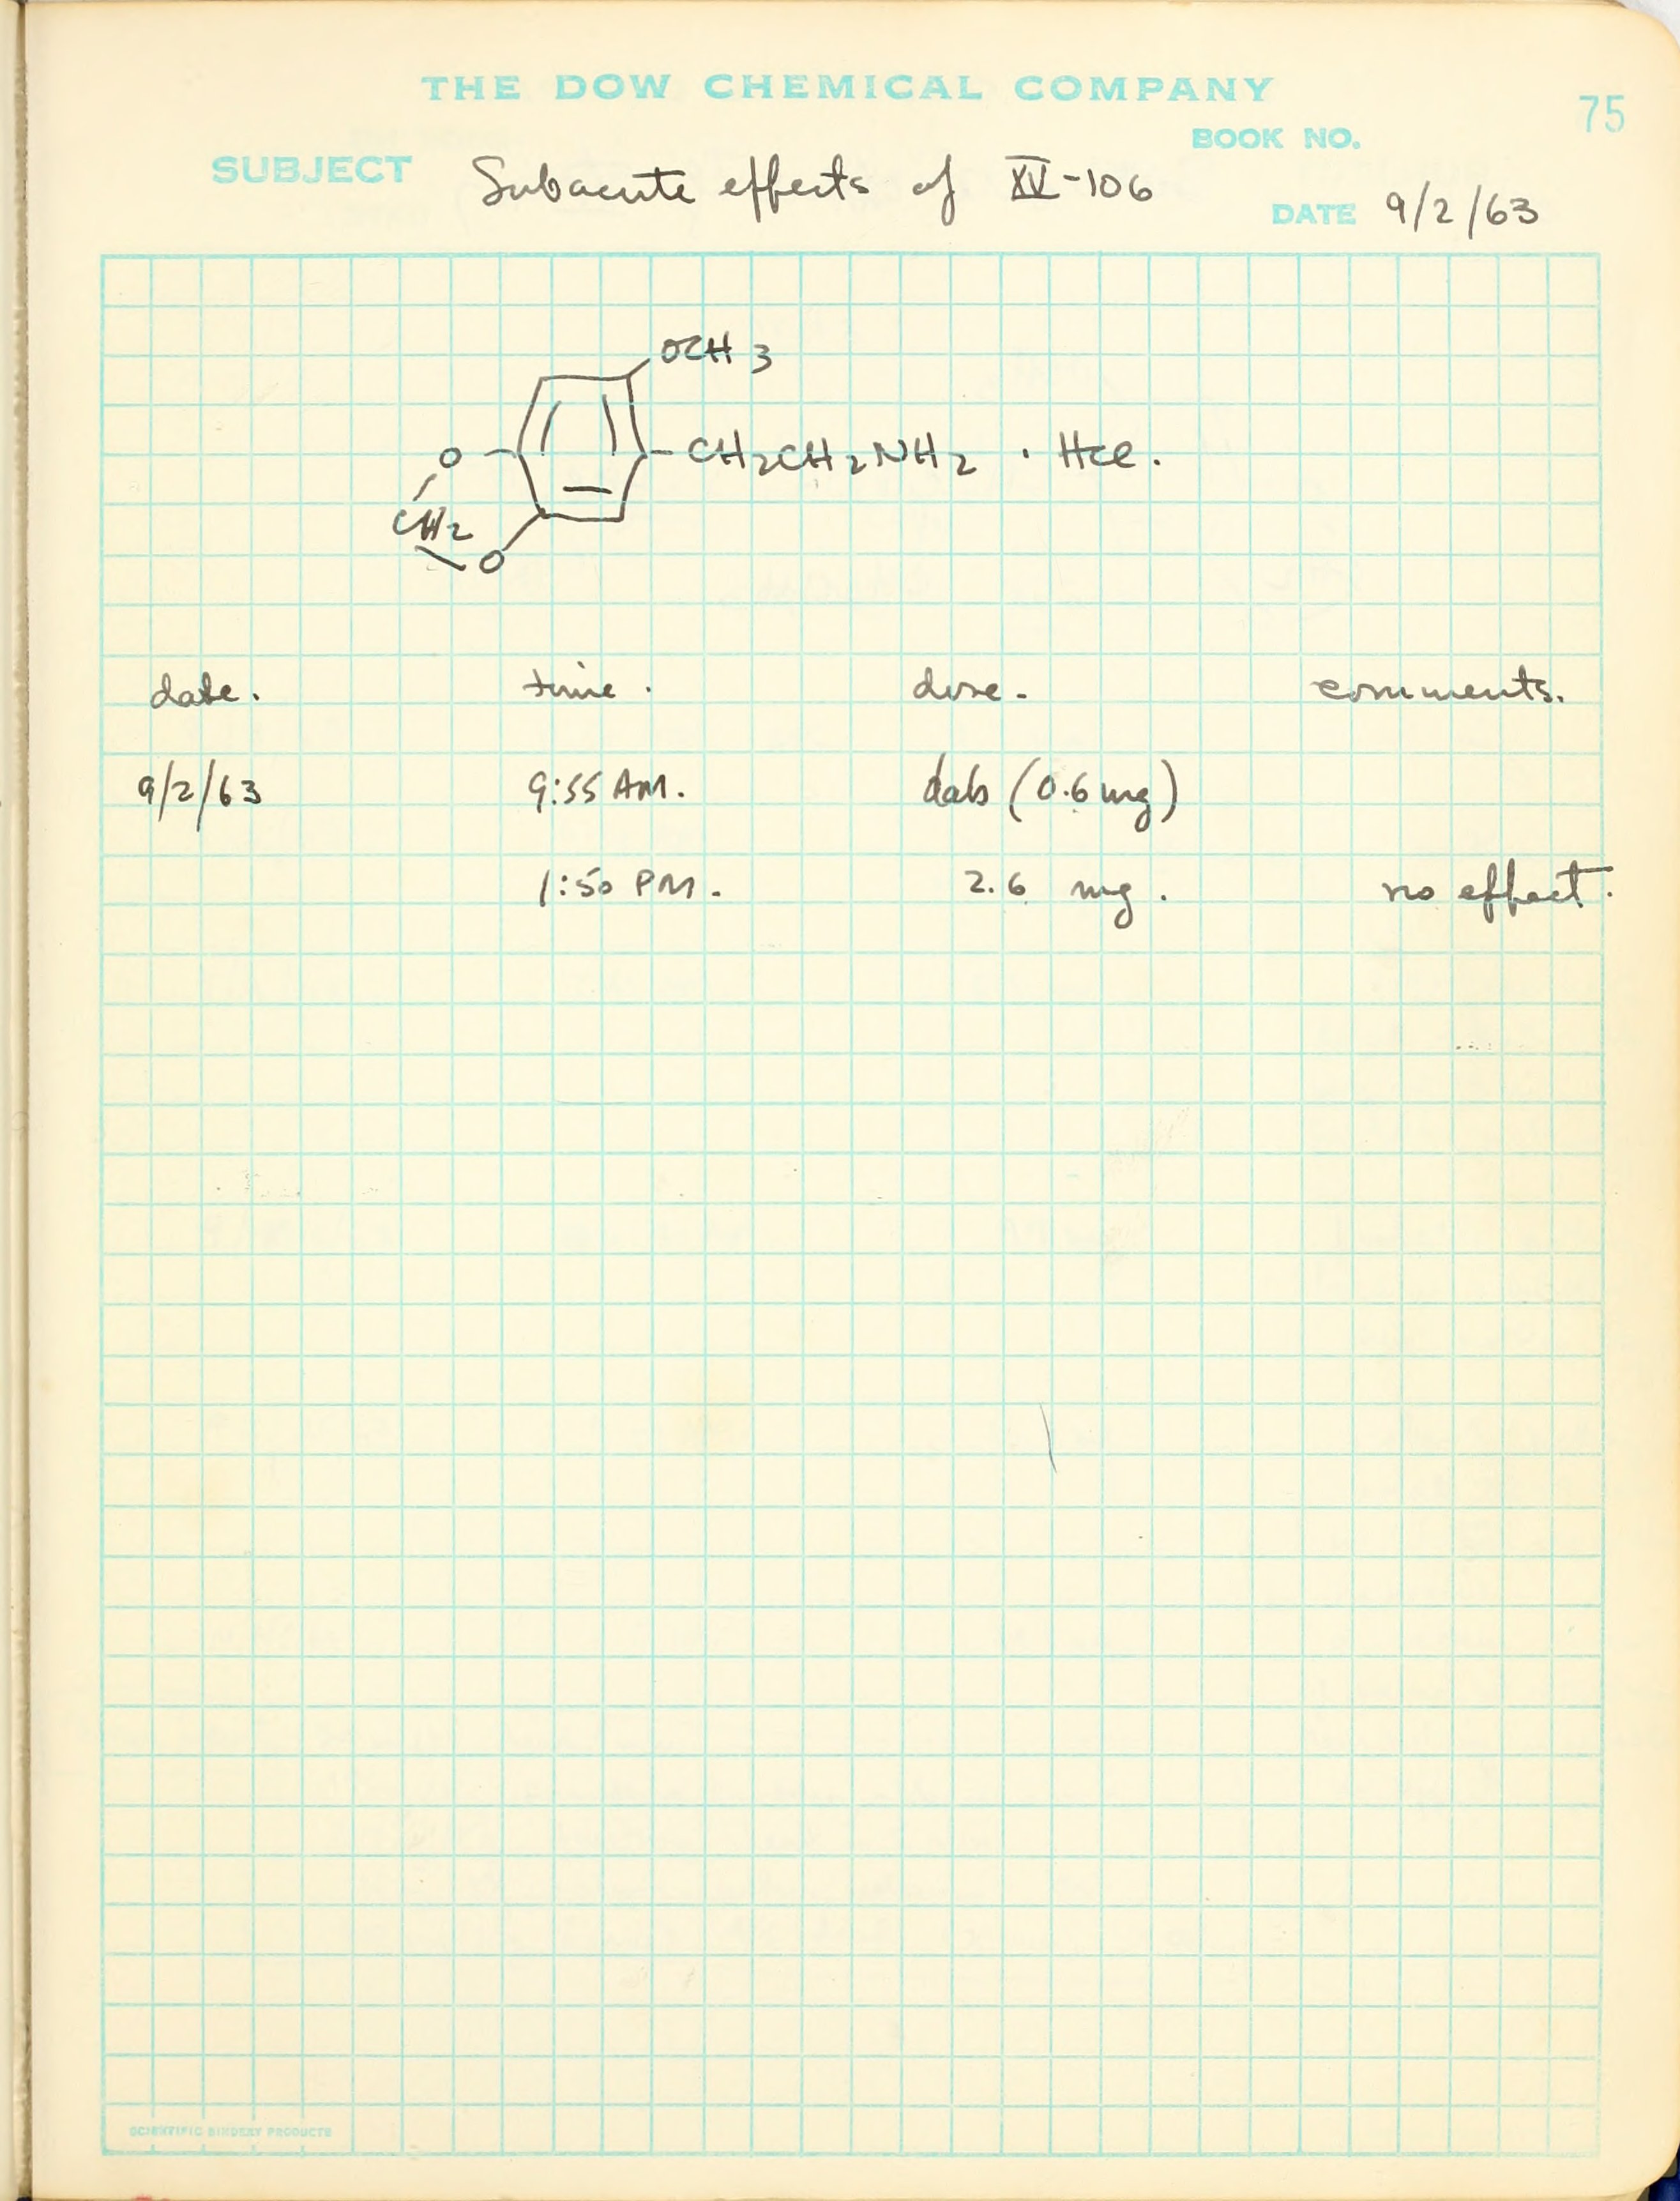 THE DOW CHEMICAL COMPANY
75
BOOK NO.
SUBJECT Subacute effects of XV-106
DATE 9/2/63
OCH3
O - CH2CH2NH2 · HCl.
CH2
O
date. time. dose. comments.
9/2/63 9:55 AM. dab (0.6 mg)
1:50 PM. 2.6 mg. no effect.
SCIENTIFIC BINDEXY PRODUCTS